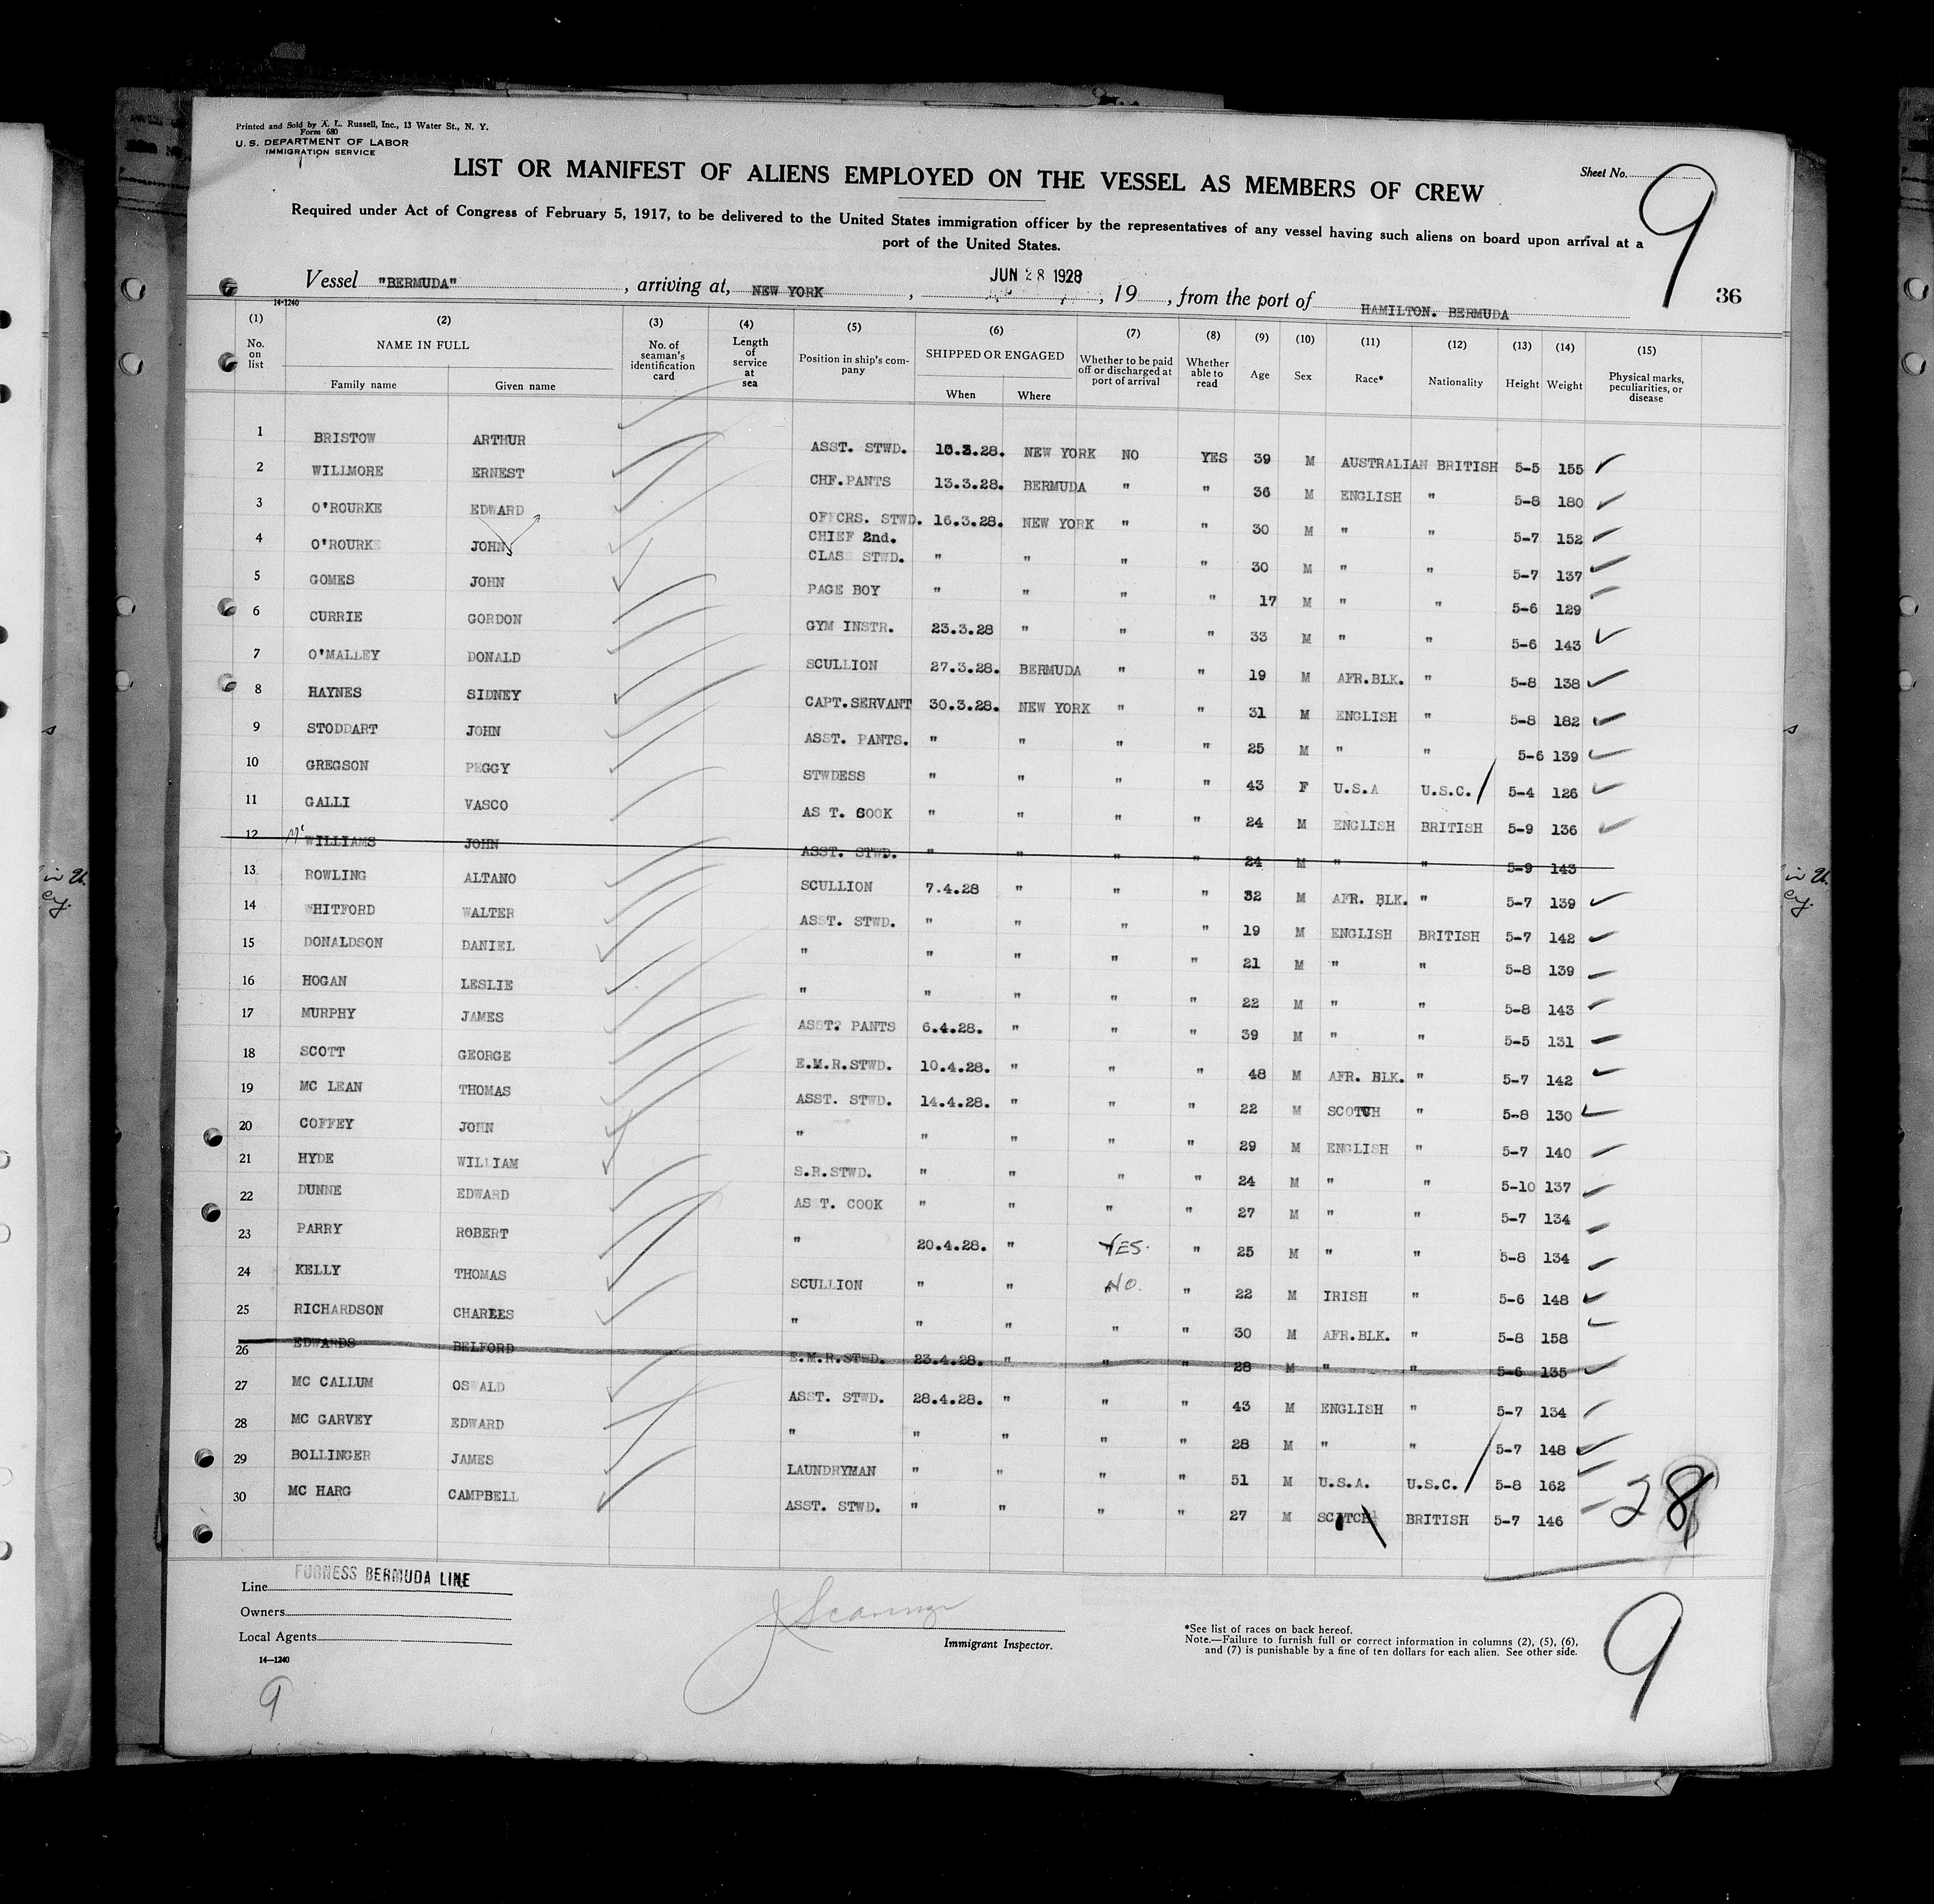 Printed and Sold by A. L. Russell, Inc., 13 Water St., N. Y.
Form 680
U. S. DEPARTMENT OF LABOR
IMMIGRATION SERVICE
Sheet No. 9
LIST OR MANIFEST OF ALIENS EMPLOYED ON THE VESSEL AS MEMBERS OF CREW
Required under Act of Congress of February 5, 1917, to be delivered to the United States immigration officer by the representatives of any vessel having such aliens on board upon arrival at a
port of the United States.
Vessel "BERMUDA", arriving at, NEW YORK, JUN 28 1928, 19, from the port of HAMILTON. BERMUDA
36
14-1240
(1) (2) (3) (4) (5) (6) (7) (8) (9) (10) (11) (12) (13) (14) (15)
No. on list NAME IN FULL Family name Given name No. of seaman's identification card Length of service at sea Position in ship's company SHIPPED OR ENGAGED When Where Whether to be paid off or discharged at port of arrival Whether able to read Age Sex Race* Nationality Height Weight Physical marks, peculiarities, or disease
1 BRISTOW ARTHUR ASST. STWD. 10.3.28. NEW YORK NO YES 39 M AUSTRALIAN BRITISH 5-5 155
2 WILLMORE ERNEST CHF.PANTS 13.3.28. BERMUDA " " 36 M ENGLISH " 5-8 180
3 O'ROURKE EDWARD OFFCRS. STWD. 16.3.28. NEW YORK " " 30 M " " 5-7 152
4 O'ROURKE JOHN CHIEF 2nd. CLASS STWD. " " " " 30 M " " 5-7 137
5 GOMES JOHN PAGE BOY " " " " 17 M " " 5-6 129
6 CURRIE GORDON GYM INSTR. 23.3.28 " " " 33 M " " 5-6 143
7 O'MALLEY DONALD SCULLION 27.3.28. BERMUDA " " 19 M AFR.BLK. " 5-8 138
8 HAYNES SIDNEY CAPT.SERVANT 30.3.28. NEW YORK " " 31 M ENGLISH " 5-8 182
9 STODDART JOHN ASST. PANTS. " " " " 25 M " " 5-6 139
10 GREGSON PEGGY STWDESS " " " " 43 F U.S.A U.S.C. 5-4 126
11 GALLI VASCO AS T. COOK " " " " 24 M ENGLISH BRITISH 5-9 136
12 Mc WILLIAMS JOHN ASST. STWD. " " " " 24 M " " 5-9 143
13 ROWLING ALTANO SCULLION 7.4.28 " " " 32 M AFR. BLK. " 5-7 139
14 WHITFORD WALTER ASST. STWD. " " " " 19 M ENGLISH BRITISH 5-7 142
15 DONALDSON DANIEL " " " " " 21 M " " 5-8 139
16 HOGAN LESLIE " " " " " 22 M " " 5-8 143
17 MURPHY JAMES ASST. PANTS 6.4.28. " " " 39 M " " 5-5 131
18 SCOTT GEORGE E.M.R.STWD. 10.4.28. " " " 48 M AFR. BLK. " 5-7 142
19 MC LEAN THOMAS ASST. STWD. 14.4.28. " " " 22 M SCOTCH " 5-8 130
20 COFFEY JOHN " " " " " 29 M ENGLISH " 5-7 140
21 HYDE WILLIAM S.R.STWD. " " " " 24 M " " 5-10 137
22 DUNNE EDWARD ASST. COOK " " " " 27 M " " 5-7 134
23 PARRY ROBERT " 20.4.28. " YES. " 25 M " " 5-8 134
24 KELLY THOMAS SCULLION " " NO. " 22 M IRISH " 5-6 148
25 RICHARDSON CHARLES " " " " " 30 M AFR.BLK. " 5-8 158
26 EDWARDS BELFORD E.M.R.STWD. 23.4.28. " " " 28 M " " 5-6 135
27 MC CALLUM OSWALD ASST. STWD. 28.4.28. " " " 43 M ENGLISH " 5-7 134
28 MC GARVEY EDWARD " " " " " 28 M " " 5-7 148
29 BOLLINGER JAMES LAUNDRYMAN " " " " 51 M U.S.A. U.S.C. 5-8 162
30 MC HARG CAMPBELL ASST. STWD. " " " " 27 M SCOTCH BRITISH 5-7 146
28
Line FURNESS BERMUDA LINE
Owners
Local Agents
14—1240
Immigrant Inspector.
*See list of races on back hereof.
Note.—Failure to furnish full or correct information in columns (2), (5), (6),
and (7) is punishable by a fine of ten dollars for each alien. See other side.
9
9